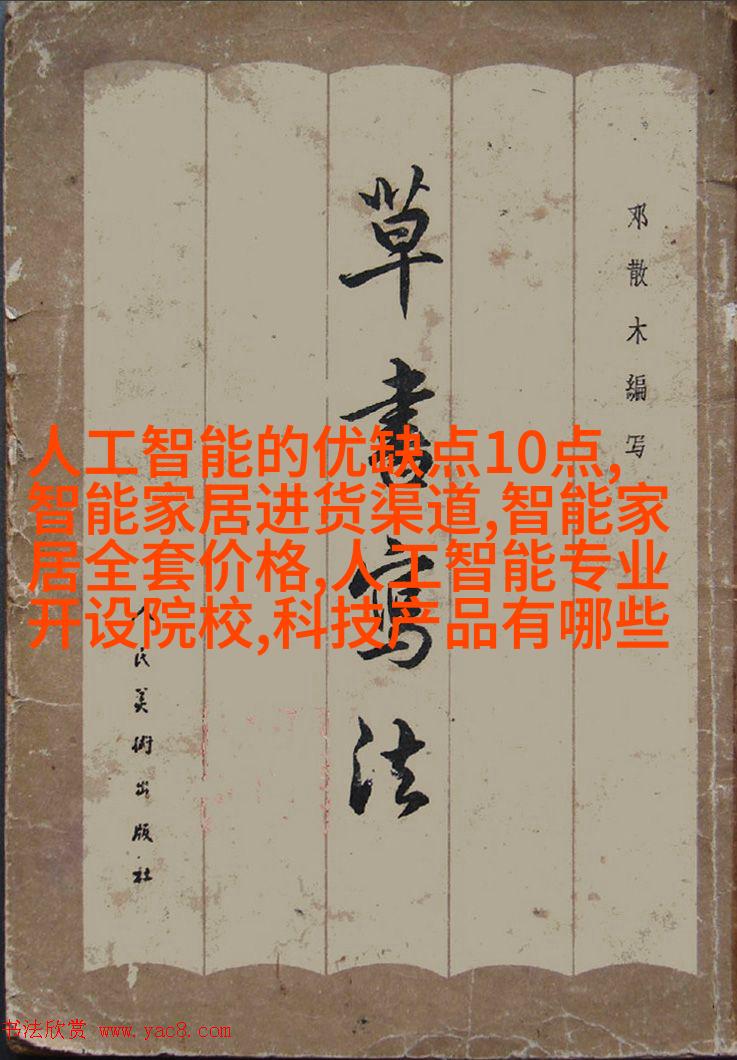 草書寫法
邓散木编写
人民美術出版社
人工智能的优缺点10点,
智能家居进货渠道,智能家
居全套价格,人工智能专业
开设院校,科技产品有哪些
书法欣赏 www.yac8.com